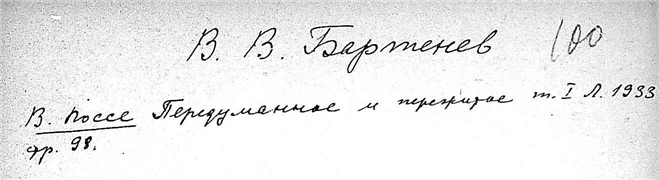 В. В. Бартенев 100
В. Поссе Передуманное и пережитое т. I Л. 1933
стр. 98.